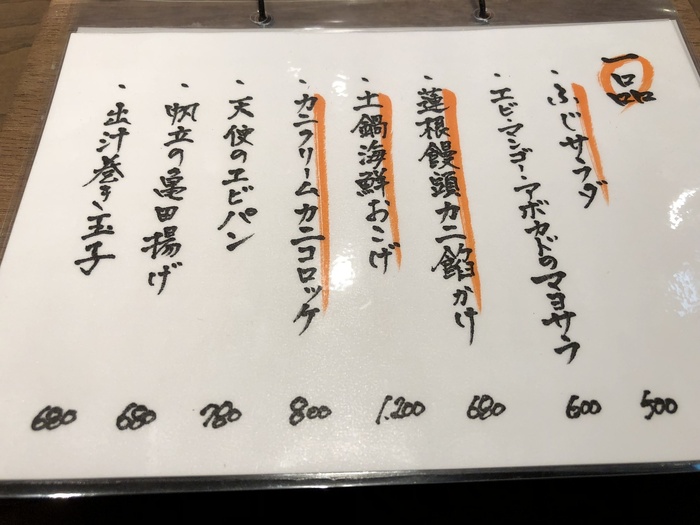 一品
・ふじサラダ 500
・エビ・マンゴー・アボカドのマヨサラ 600
・蓮根饅頭カニ餡かけ 680
・土鍋海鮮おこげ 1,200
・カニクリームカニコロッケ 800
・天使のエビパン 780
・帆立の亀田揚げ 680
・出汁巻き玉子 680